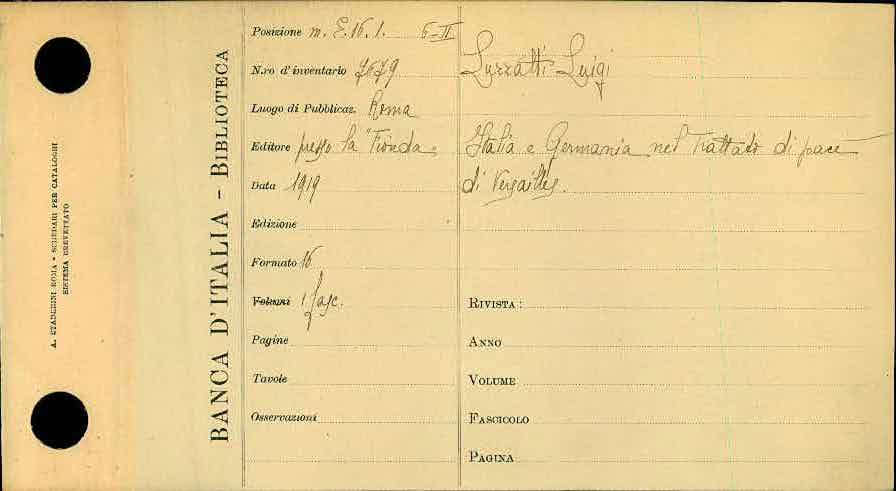 A. STADERINI ROMA - SCHEDARI PER CATALOGHI
SISTEMA BREVETTATO
BANCA D'ITALIA - BIBLIOTECA
Posizione m. E. 16. 1. 6-II
N.ro d'inventario 7679
Luogo di Pubblicaz. Roma
Editore presso la "Fionda"
Data 1919
Edizione
Formato 16
Volumi 1 fasc.
Pagine
Tavole
Osservazioni
Luzzatti Luigi
Italia e Germania nel Trattato di pace
di Versailles.
RIVISTA:
ANNO
VOLUME
FASCICOLO
PAGINA